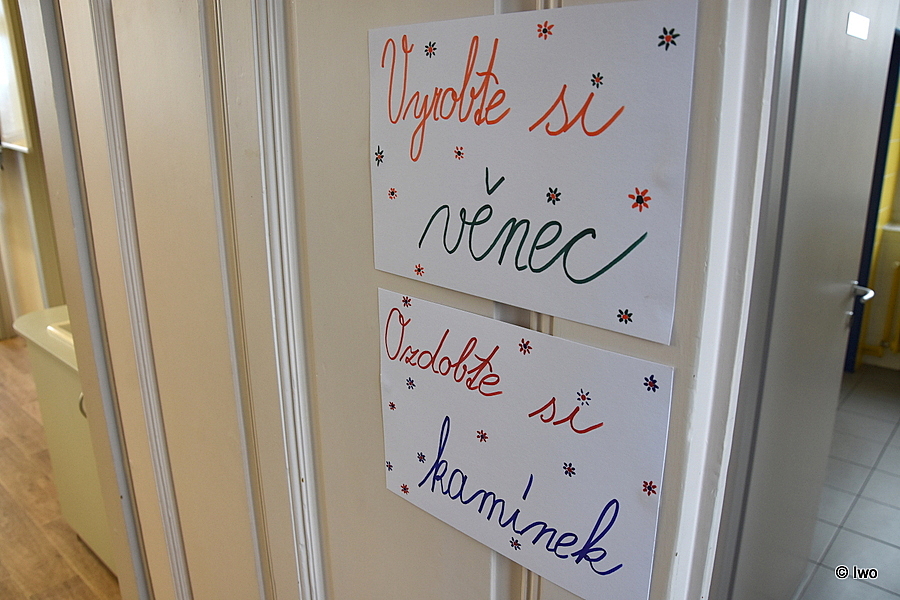 Vyrobte si
věnec
Ozdobte si
kamínek
© Iwo